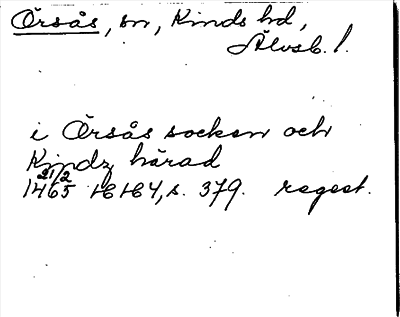 Örsås, sn, Kinds hd,
Älvsb. l.
i Örsås socken och
Kindz härad
21/2
1465 HH 4, s. 379. regest.